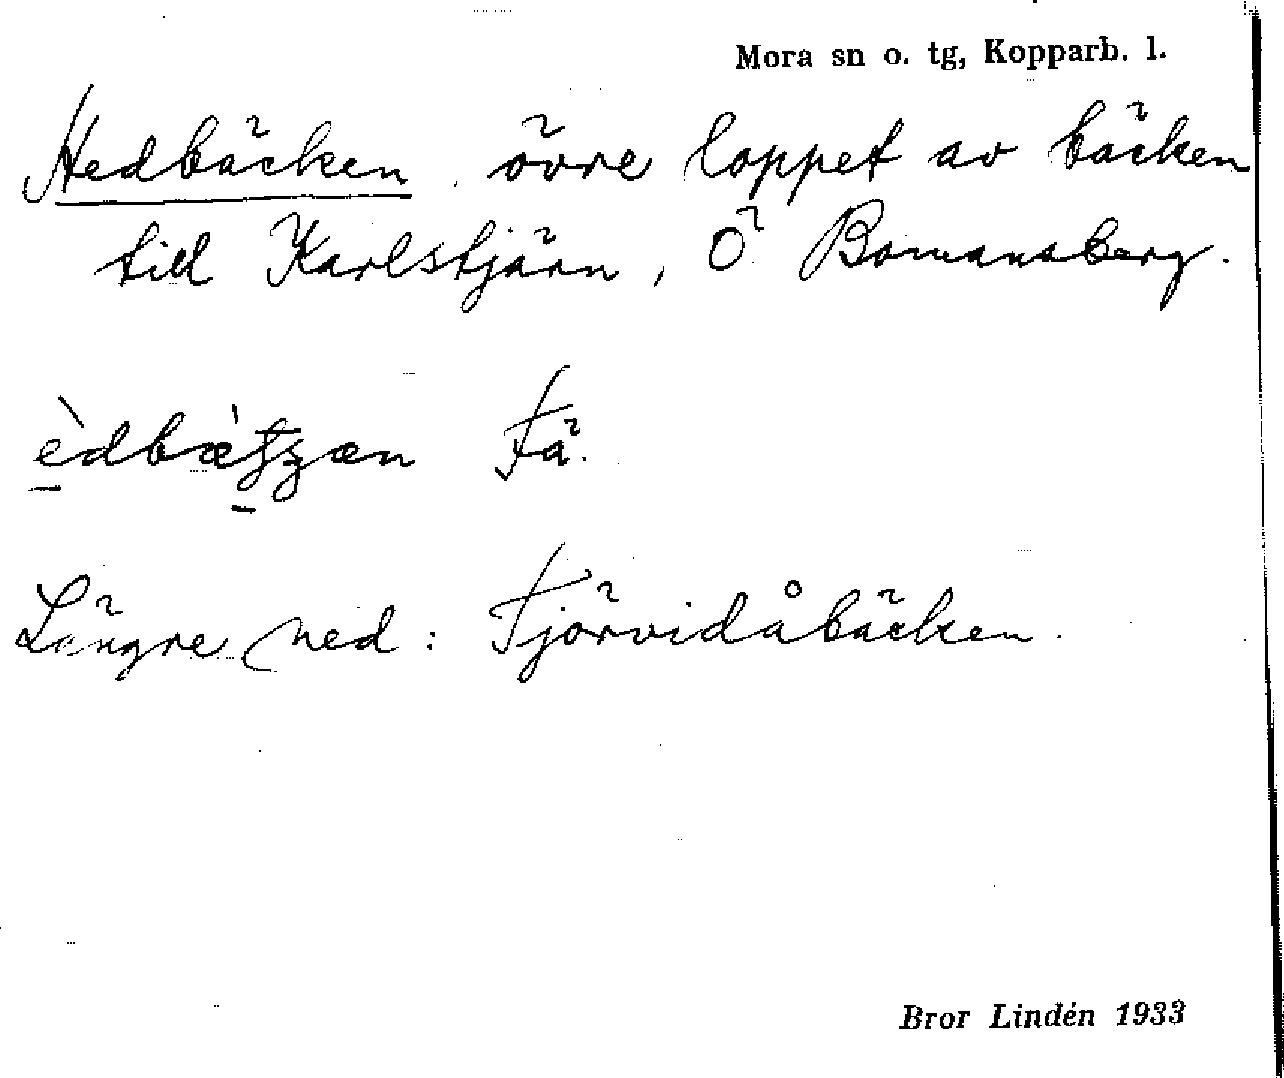 Mora sn o. tg, Kopparb. l.
Hedbäcken, övre loppet av bäcken
till Karlstjärn, Ö Bomansberg.
Fä.
Längre ned: Fjörvidåbäcken.
Bror Lindén 1933